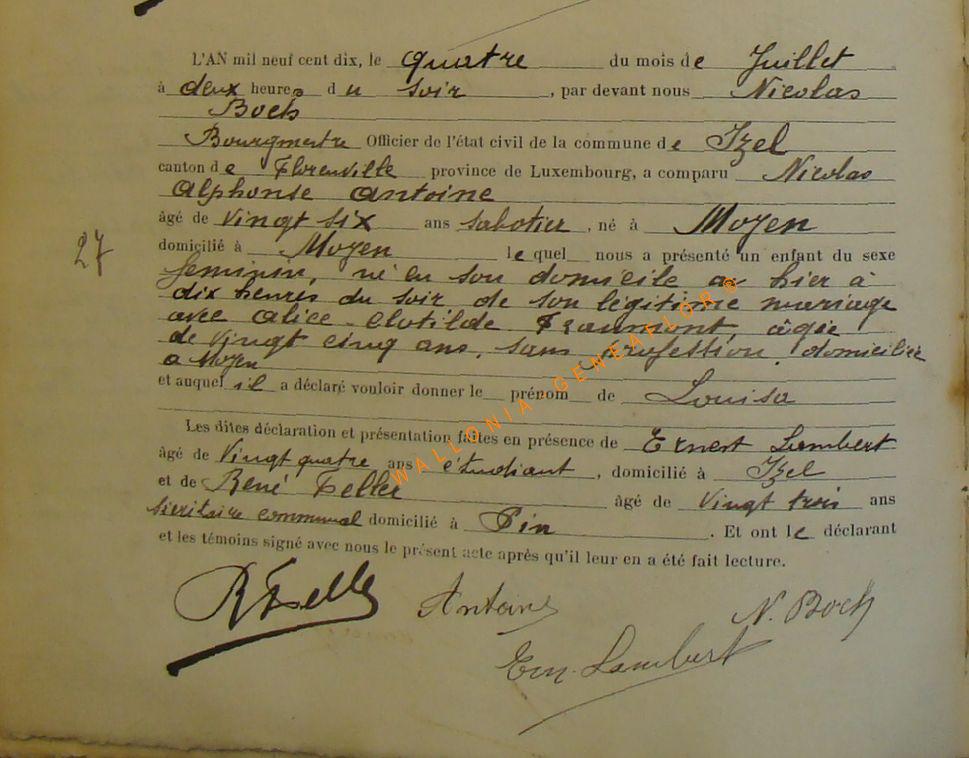 L'AN mil neuf cent dix, le quatre du mois de Juillet
à deux heures du soir, par devant nous Nicolas
Boch
Bourgmestre Officier de l'état civil de la commune de Izel
canton de Florenville province de Luxembourg, a comparu Nicolas
Alphonse Antoine
âgé de vingt six ans sabotier, né à Moyen
domicilié à Moyen lequel nous a présenté un enfant du sexe
27
feminin, né en son domicile hier à
dix heures du soir de son légitime mariage
avec Alice Clotilde Fraumont, âgée
de vingt cinq ans, sans profession, domiciliée
a Moyen
et auquel il a déclaré vouloir donner le prénom de Louisa
Les dites déclaration et présentation faites en présence de Ernest Lambert
âgé de vingt quatre ans étudiant, domicilié à Izel
et de René Feller âgé de vingt trois ans
secritaire communal domicilié à Pin. Et ont le déclarant
et les témoins signé avec nous le présent acte après qu'il leur en a été fait lecture.
R Feller Antoine N. Boch
Ern. Lambert
WALLONIA-GENEATLOR®